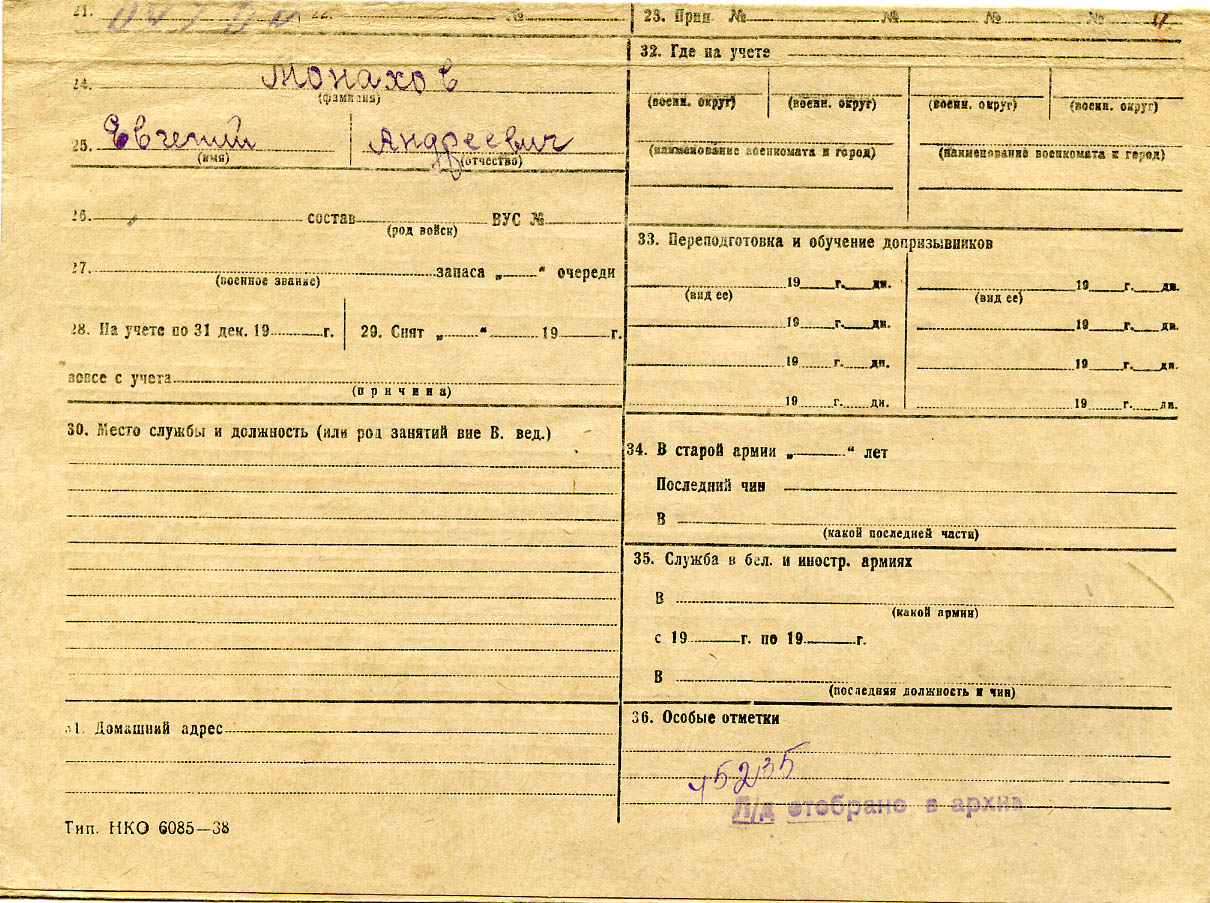 21. 22. №
23. Прип. № № № №
24. Монахов
(фамилия)
25. Евгений Андреевич
(имя) (отчество)
26. состав ВУС №
(род войск)
27. запаса „ “ очереди
(военное звание)
28. На учете по 31 дек. 19 г.
29. Снят „ “ 19 г.
вовсе с учета
(причина)
30. Место службы и должность (или род занятий вне В. вед.)
31. Домашний адрес
Тип. НКО 6085—38
32. Где на учете
(военн. округ) (военн. округ) (военн. округ) (военн. округ)
(наименование военкомата и город) (наименование военкомата и город)
33. Переподготовка и обучение допризывников
19 г. дн. 19 г. дн.
(вид ее) (вид ее)
19 г. дн. 19 г. дн.
19 г. дн. 19 г. дн.
19 г. дн. 19 г. дн.
34. В старой армии „ “ лет
Последний чин
В
(какой последней части)
35. Служба в бел. и иностр. армиях
В
(какой армии)
с 19 г. по 19 г.
В
(последняя должность и чин)
36. Особые отметки
45235
Л/д отобрано в архив